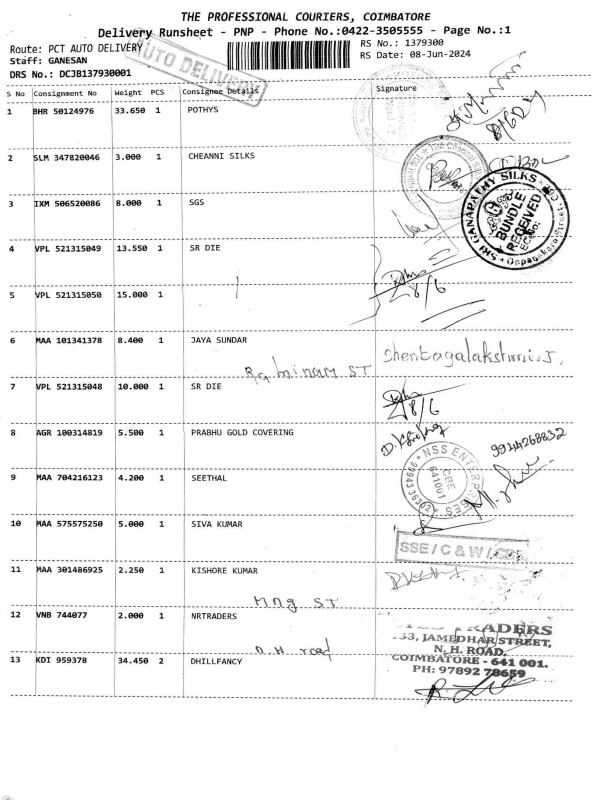 THE PROFESSIONAL COURIERS, COIMBATORE
Delivery Runsheet - PNP - Phone No.:0422-3505555 - Page No.:1
Route: PCT AUTO DELIVERY
RS No.: 1379300
Staff: GANESAN
RS Date: 08-Jun-2024
DRS No.: DCJB137930001
AUTO DELIVERY
S No Consignment No Weight PCS Consignee Details Signature
1 BHR 50124976 33.650 1 POTHYS
8/6/24
2 SLM 347820046 3.000 1 CHEANNI SILKS
3 IXM 506520086 8.000 1 SGS
SRI GANAPATHY SILKS
BUNDLE
RECEIVED
4 VPL 521315049 13.550 1 SR DIE
8/6
5 VPL 521315050 15.000 1
6 MAA 101341378 8.400 1 JAYA SUNDAR
ST
7 VPL 521315048 10.000 1 SR DIE
8/6
8 AGR 100314819 5.500 1 PRABHU GOLD COVERING
9944268832
9 MAA 704216123 4.200 1 SEETHAL
NSS ENTERPRISES
CBE
641001
10 MAA 575575250 5.000 1 SIVA KUMAR
SSE / C & W / CBE
11 MAA 301486925 2.250 1 KISHORE KUMAR
Mng ST
12 VNB 744077 2.000 1 NRTRADERS
TRADERS
33, JAMEDHAR STREET,
N. H. ROAD,
COIMBATORE - 641 001.
PH: 97892 78659
road
13 KDI 959378 34.450 2 DHILLFANCY